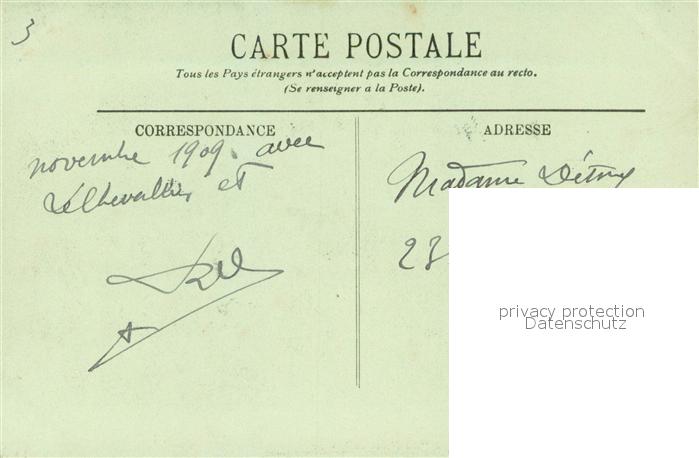 3
CARTE POSTALE
Tous les Pays étrangers n'acceptent pas la Correspondance au recto.
(Se renseigner a la Poste).
CORRESPONDANCE
ADRESSE
novembre 1909. avec
et
Madame
23
privacy protection
Datenschutz